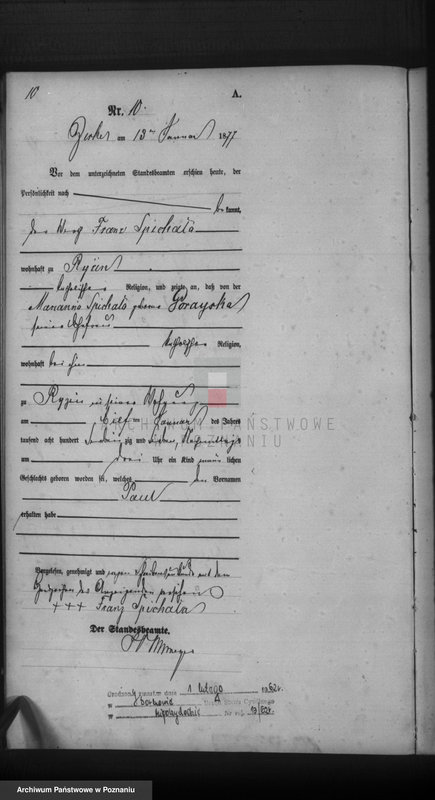 10
A.
Nr. 10.
Zirke am 13ten Januar 1877
Vor dem unterzeichneten Standesbeamten erschien heute, der
Persönlichkeit nach
be kannt,
der Franz Spichala
wohnhaft zu Ryzin
katholischer Religion, und zeigte an, daß von der
Marianna Spichala geborne Gorayska
seiner Ehefrau
katholischer Religion,
wohnhaft bei ihm
zu Ryzin in seiner Wohnung
am Elften Januar des Jahres
tausend acht hundert siebenzig und sieben, Nachmittags
um drei Uhr ein Kind männlichen
Geschlechts geboren worden sei, welches den Vornamen
Paul
erhalten habe
Vorgelesen, genehmigt und wegen mit den
Handzeichen des Anzeigenden versehen
+++ Franz Spichala
Der Standesbeamte.
ARCHIWUM PAŃSTWOWE
W POZNANIU
1 lutego 1962r.
w
w Nr rej. 13/62r.
Archiwum Państwowe w Poznaniu